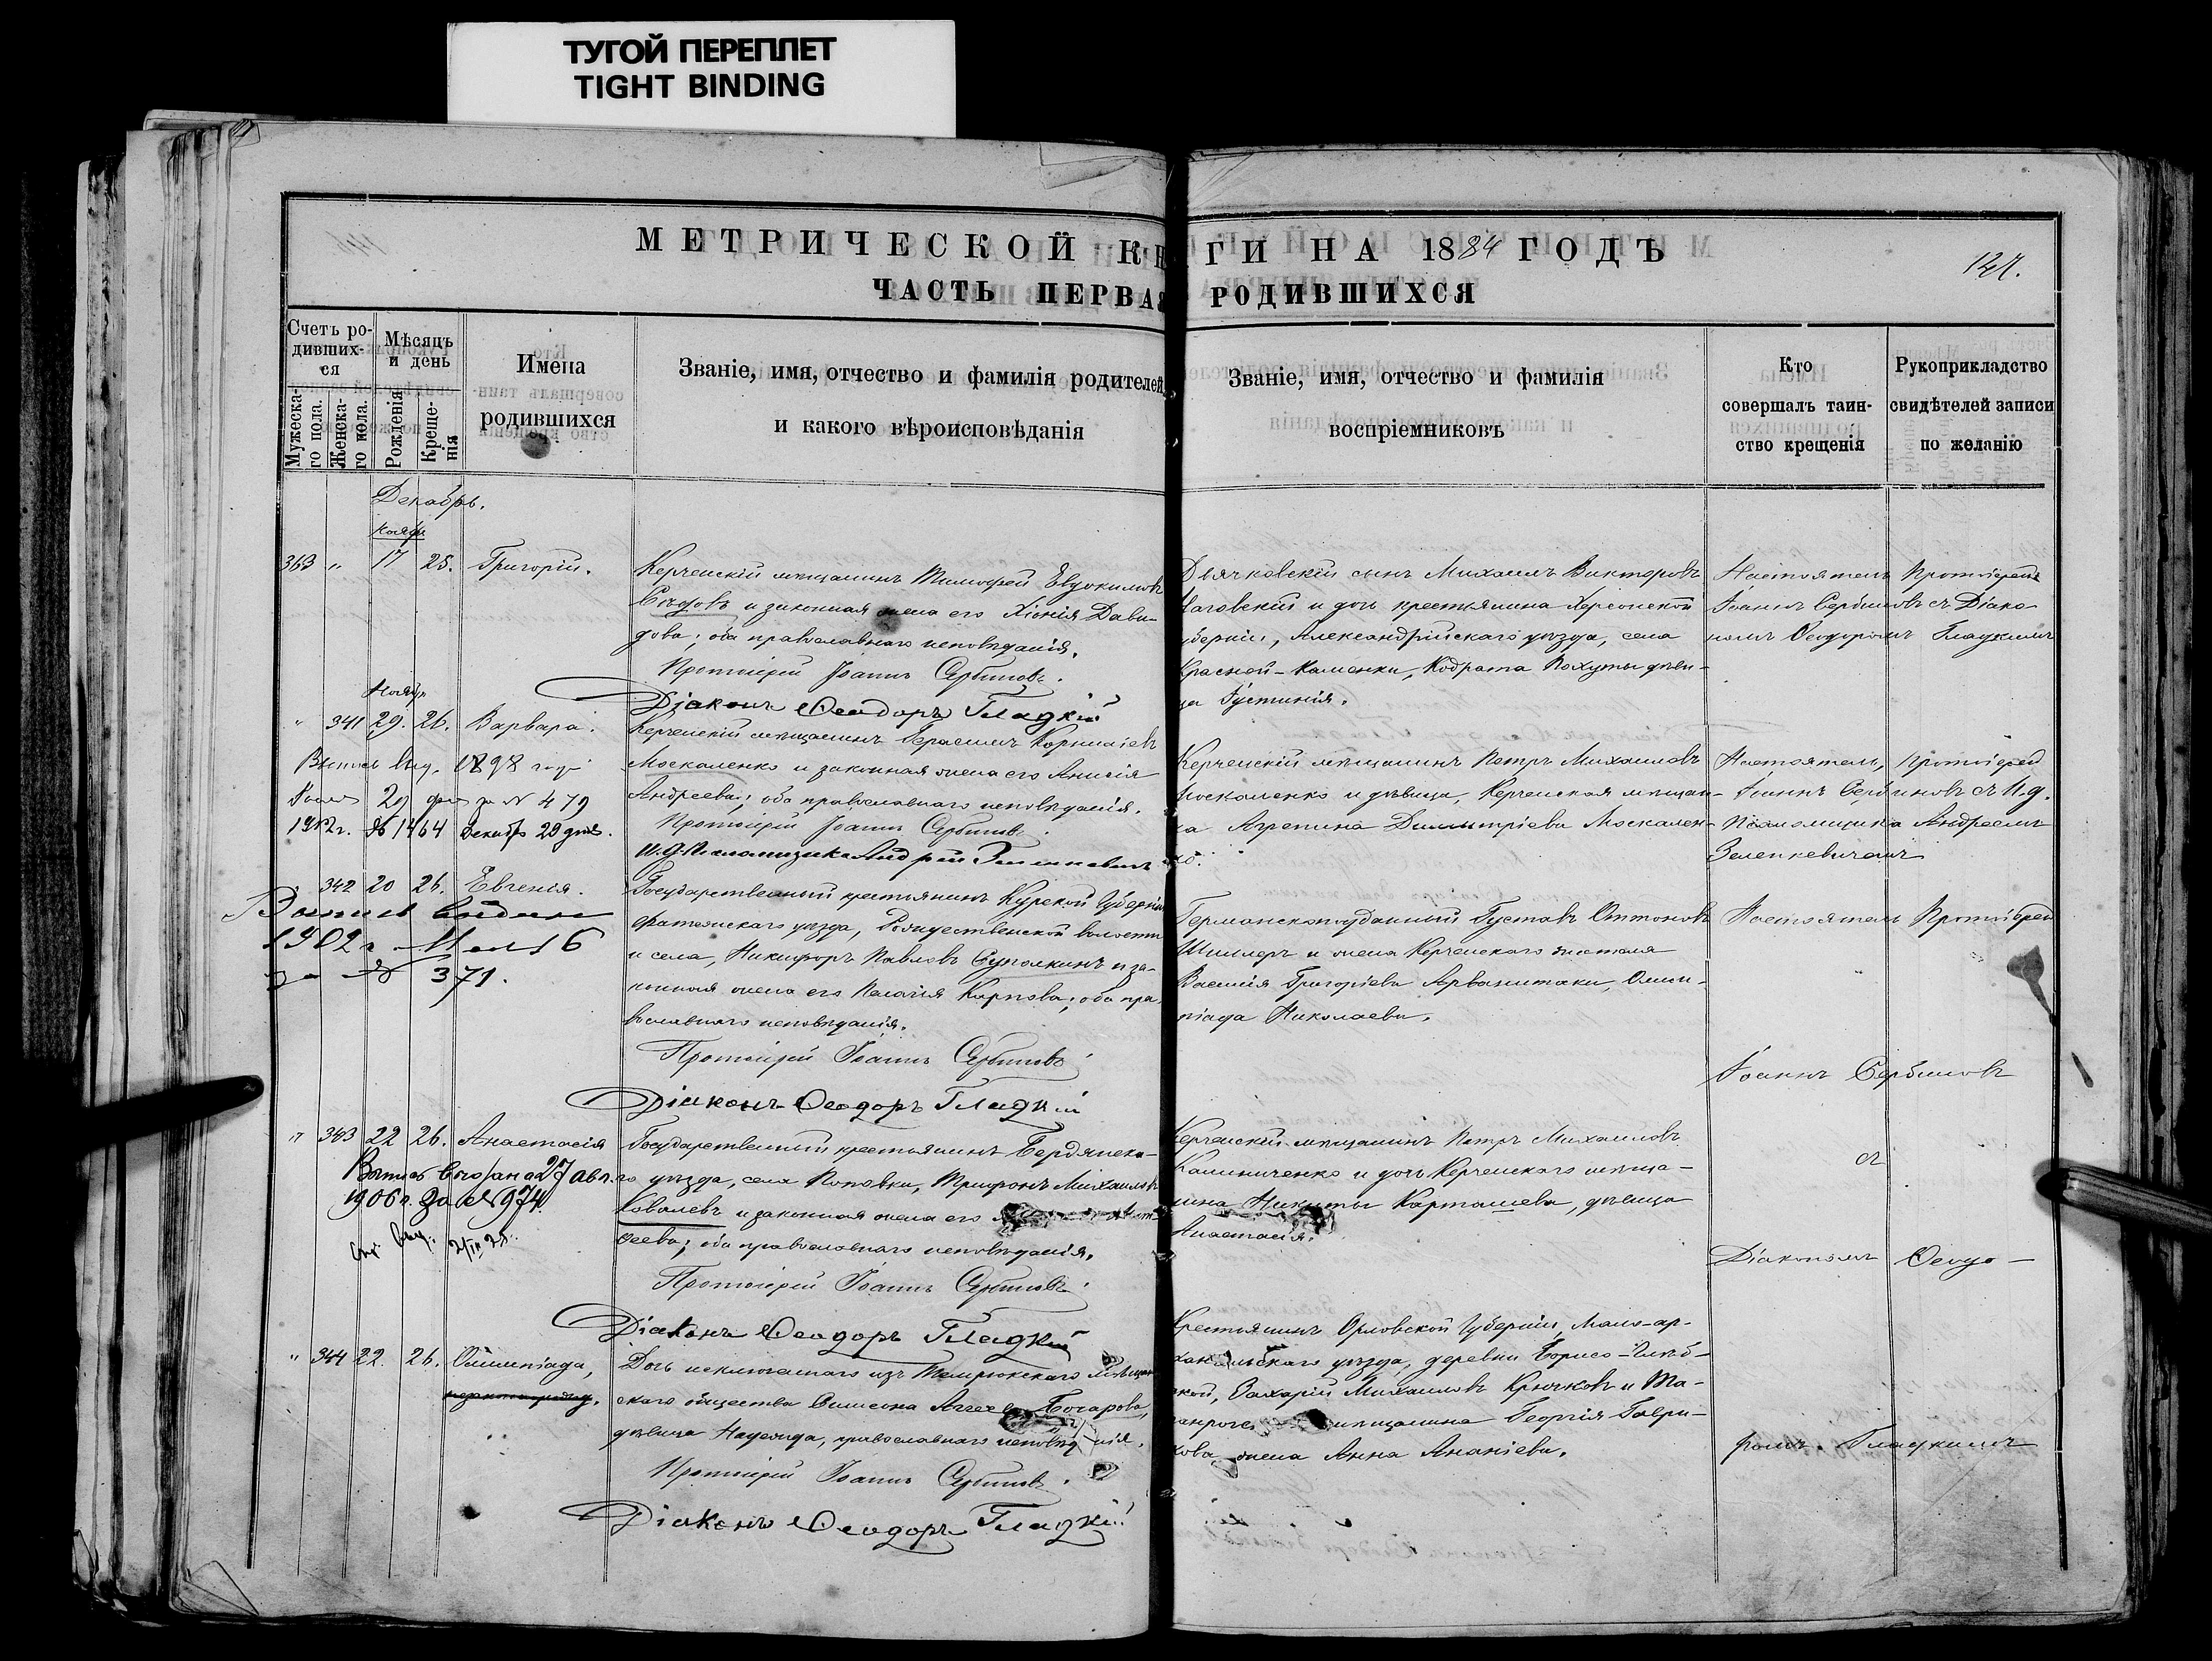 ТУГОЙ ПЕРЕПЛЕТ
TIGHT BINDING
МЕТРИЧЕСКОЙ КН
ГИ НА 1884 ГОДЪ
ЧАСТЬ ПЕРВАЯ
РОДИВШИХСЯ
Счетъ ро-
дивших-
ся
Мужеска-
го пола.
Женска-
го пола.
Мѣсяцъ
и день
Рожденія
Креще-
нія
Имена
родившихся
Званіе, имя, отчество и фамилія родителей,
и какого вѣроисповѣданія
Званіе, имя, отчество и фамилія
воспріемниковъ
Кто
совершалъ таин-
ство крещенія
Рукоприкладство
свидѣтелей записи
по желанію
Декабрь.
Ноября
363 " 17 25. Григорій.
Керченскій мѣщанинъ Тимофей Евдокимовъ
и законная жена его Ксенія Дави-
дова; оба православнаго исповѣданія.
Протоіерей Іоаннъ Сербиновъ.
Діаконъ Ѳеодоръ Гладкій
сынъ Михаилъ Викторовъ
и дочь крестьянина Херсонской
губерніи, Александрійскаго уѣзда, села
Красной-Каменки, Кодрата дѣви-
ца Іустинія.
Настоятель Протоіерей
Іоаннъ Сербиновъ съ Діако-
номъ Ѳеодоромъ Гладкимъ
Ноября
" 341 29. 26. Варвара.
Керченскій мѣщанинъ Герасимъ
Москаленко и законная жена его Анисія
Андреева; оба православнаго исповѣданія.
Протоіерей Іоаннъ Сербиновъ.
И.д. Псаломщика Андрей Зеленкевичъ
Выпись выд. 1898 года
29 дня за № 479
1912г. № 1464 Декабрь 29 дня.
Керченскій мѣщанинъ Петръ Михаиловъ
Москаленко и дѣвица, Керченская мѣщан-
ка Агрепина Димитріева Москален-
ко.
Настоятель, протоіерей
Іоаннъ Сербиновъ съ И.д.
Псаломщика Андреемъ
Зеленкевичемъ
" 342 20 26. Евгенія.
Государственный крестьянинъ Курской Губерніи
Фатежскаго уѣзда, Рождественской волости
и села, Никифоръ Павловъ и за-
конная жена его Пелагія Карпова; оба пра-
вославнаго исповѣданія.
Протоіерей Іоаннъ Сербиновъ
Діаконъ Ѳеодоръ Гладкій
Выпись выдана
1902 г. Мая 16
за № 371.
Германскоподданный Густавъ Оттоновъ
Шиллеръ и жена Керченскаго
Василія Григоріева Арванитаки, Олим-
піада Николаева.
Настоятель Протоіерей
Іоаннъ Сербиновъ
" 343 22 26. Анастасія
Государственный крестьянинъ Бердянска-
го уѣзда, села Поповки, Трифонъ Михаиловъ
Ковалевъ и законная жена его
оба православнаго исповѣданія.
Протоіерей Іоаннъ Сербиновъ
Діаконъ Ѳеодоръ Гладкій
Выпись выдана 27 авг.
1906 г. за № 974
Керченскій мѣщанинъ Петръ Михаиловъ
Калиниченко и дочь Керченскаго мѣща-
нина Никиты Карташева, дѣвица
Анастасія.
съ
Діакономъ Ѳеодо-
" 344 22. 26. Олимпіада,
Дочь исключеннаго изъ Темрюкскаго мѣщан
скаго общества Симеона Бочарова,
дѣвица Надежда, православнаго исповѣд нія.
Протоіерей Іоаннъ Сербиновъ.
Діаконъ Ѳеодоръ Гладкій
Крестьянинъ Орловской Губерніи, Мало-ар-
уѣзда, деревни Борисо-Глѣб-
ской, Захарій Михаиловъ Крючковъ и Та-
мѣщанина Георгія Гаври-
лова жена Анна Ананіева.
ромъ Гладкимъ